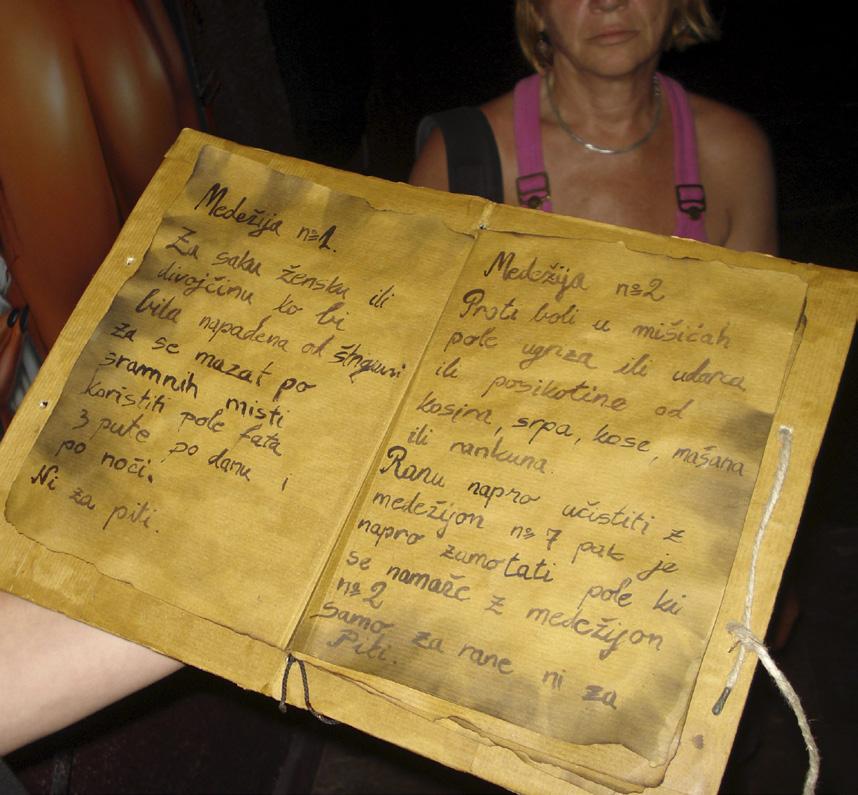 Medežija nº1.
Za saku žensku ili
divojčinu ko bi
bila napadena od štriguni
za se mazat po
sramnih misti
koristiti pole fata
3 pute po danu i
po noči.
Ni za piti.
Medežija nº2
Proti boli u mišićah
pole ugriza ili udarca
ili posikotine od
kosira, srpa, kose, mašana
ili rankuna.
Ranu napro učistiti z
medežijon nº 7 pak je
napro zamotati pole ki
se namaže z medežijon
nº 2
Samo za rane ni za
Piti.